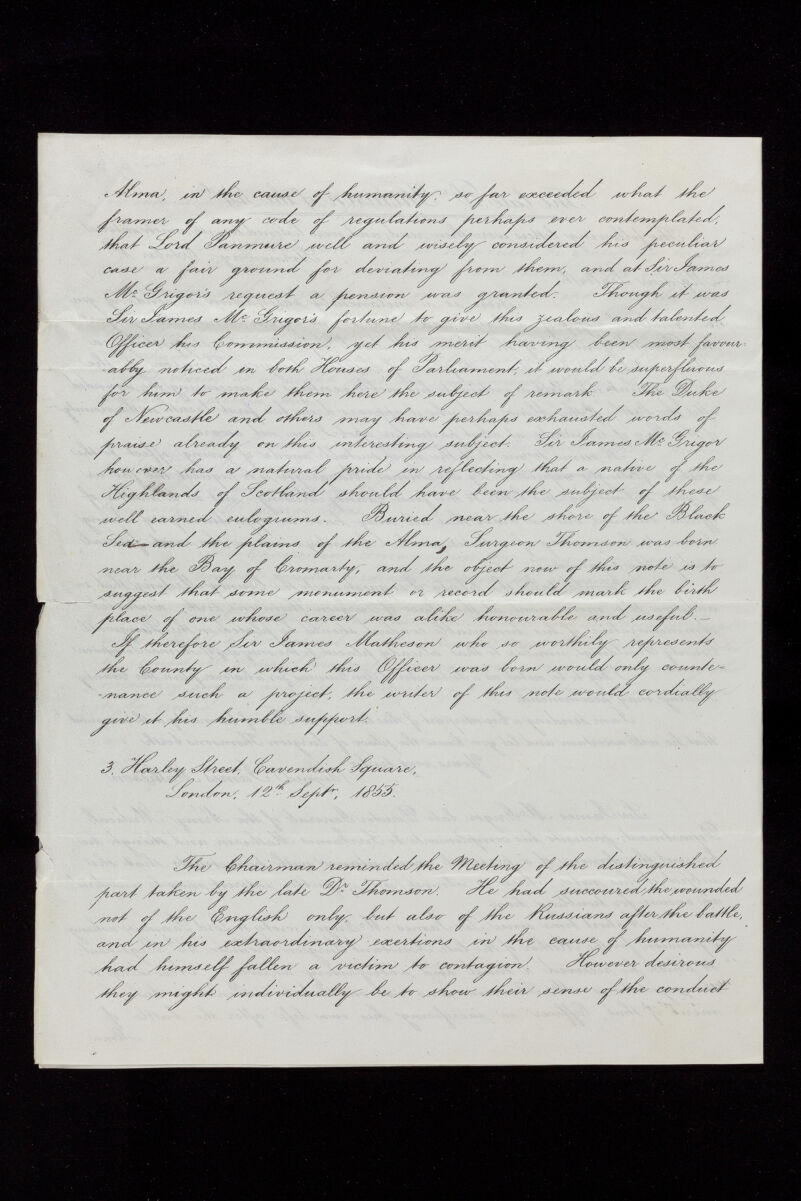 Alma, in the cause of humanity, so far exceeded what the
framer of any code of regulations perhaps ever contemplated,
that Lord Panmure well and wisely considered his peculiar
case a fair ground for deviating from them, and at Sir James
Mc Grigor's request a pension was granted. Though it was
Sir James Mc Grigor's fortune to give this zealous and talented
Officer his Commission, yet his merit having been most favour-
ably noticed in both Houses of Parliament, it would be superfluous
for him to make them here the subject of remark. The Duke
of Newcastle and others may have perhaps exhausted words of
praise already on this interesting subject. Sir James Mc Grigor
however has a natural pride in reflecting that a native of the
Highlands of Scotland should have been the subject of these
well earned eulogiums. Buried near the shore of the Black
Sea and the plains of the Alma, Surgeon Thomson was born
near the Bay of Cromarty, and the object now of this note is to
suggest that some monument or record should mark the birth
place of one whose career was alike honourable and useful.—
If therefore Sir James Matheson who so worthily represents
the County in which this Officer was born would only counte-
-nance such a project, the writer of this note would cordially
give it his humble support.
3. Harley Street, Cavendish Square,
London, 12th Septr, 1855.
The Chairman reminded the Meeting of the distinguished
part taken by the late Dr Thomson. He had succoured the wounded
not of the English only, but also of the Russians after the battle,
and in his extraordinary exertions in the cause of humanity
had himself fallen a victim to contagion. However desirous
they might individually be to show their sense of the conduct